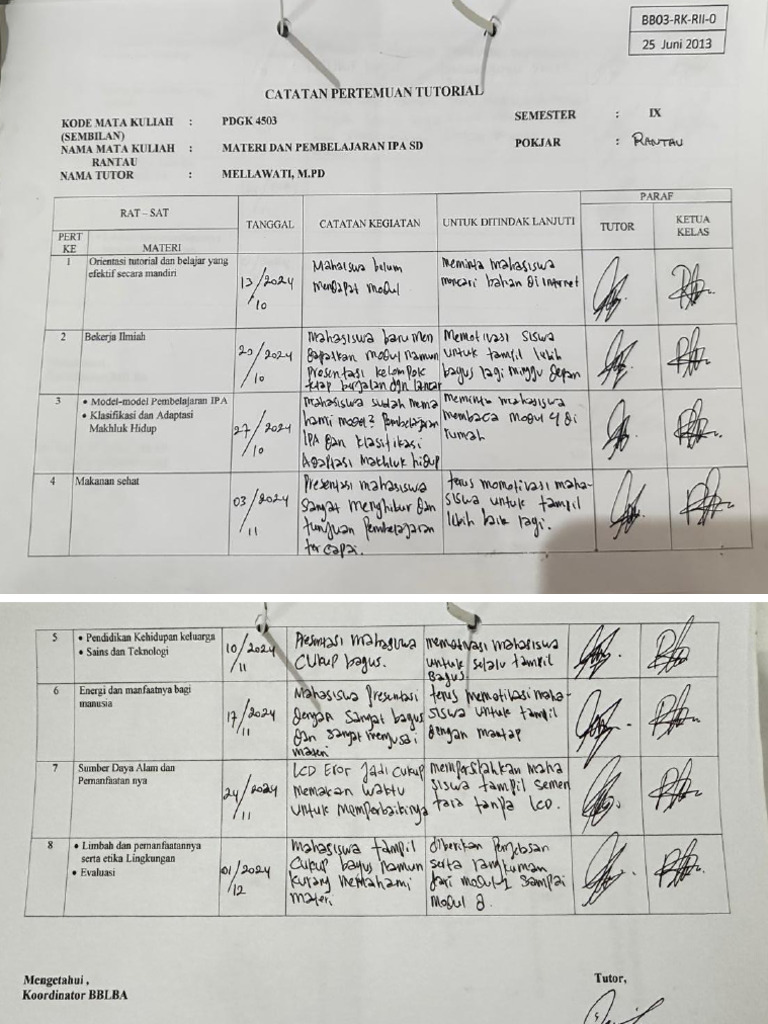 BB03-RK-RII-0
25 Juni 2013
CATATAN PERTEMUAN TUTORIAL
KODE MATA KULIAH : PDGK 4503 SEMESTER : IX
(SEMBILAN)
NAMA MATA KULIAH : MATERI DAN PEMBELAJARAN IPA SD POKJAR : RANTAU
RANTAU
NAMA TUTOR : MELLAWATI, M.PD
RAT – SAT TANGGAL CATATAN KEGIATAN UNTUK DITINDAK LANJUTI PARAF
PERT KE MATERI TUTOR KETUA KELAS
1 Orientasi tutorial dan belajar yang
efektif secara mandiri
13/2024
10
Mahasiswa belum
mendapat modul
meminta mahasiswa
mencari bahan di internet
2 Bekerja Ilmiah
20/2024
10
Mahasiswa baru men
dapatkan modul namun
presentasi kelompok
tetap berjalan dgn lancar
Memotivasi siswa
untuk tampil lebih
bagus lagi minggu depan
3 • Model-model Pembelajaran IPA
• Klasifikasi dan Adaptasi
Makhluk Hidup
27/2024
10
Mahasiswa sudah mema
hami model2 pembelajaran
IPA dan klasifikasi
Adaptasi makhluk hidup
meminta mahasiswa
membaca modul 4 di
rumah
4 Makanan sehat
03/2024
11
Presentasi mahasiswa
sangat menghibur dan
tujuan pembelajaran
tercapai.
terus memotivasi maha-
siswa untuk tampil
lebih baik lagi.
5 • Pendidikan Kehidupan keluarga
• Sains dan Teknologi
10/2024
11
Presentasi mahasiswa
cukup bagus.
memotivasi mahasiswa
untuk selalu tampil
bagus
6 Energi dan manfaatnya bagi
manusia
17/2024
11
Mahasiswa presentasi
dengan sangat bagus
dan sangat menguasai
materi
terus memotivasi maha-
siswa untuk tampil
dengan mantap
7 Sumber Daya Alam dan
Pemanfaatan nya
24/2024
11
LCD Eror jadi cukup
memakan waktu
untuk memperbaikinya
mempersilahkan maha
siswa tampil semen
tara tanpa LCD.
8 • Limbah dan pemanfaatannya
serta etika Lingkungan
• Evaluasi
01/2024
12
Mahasiswa tampil
cukup bagus namun
kurang memahami
materi
diberikan penjelasan
serta rangkuman
dari modul 1 sampai
modul 8.
Mengetahui ,
Koordinator BBLBA
Tutor,